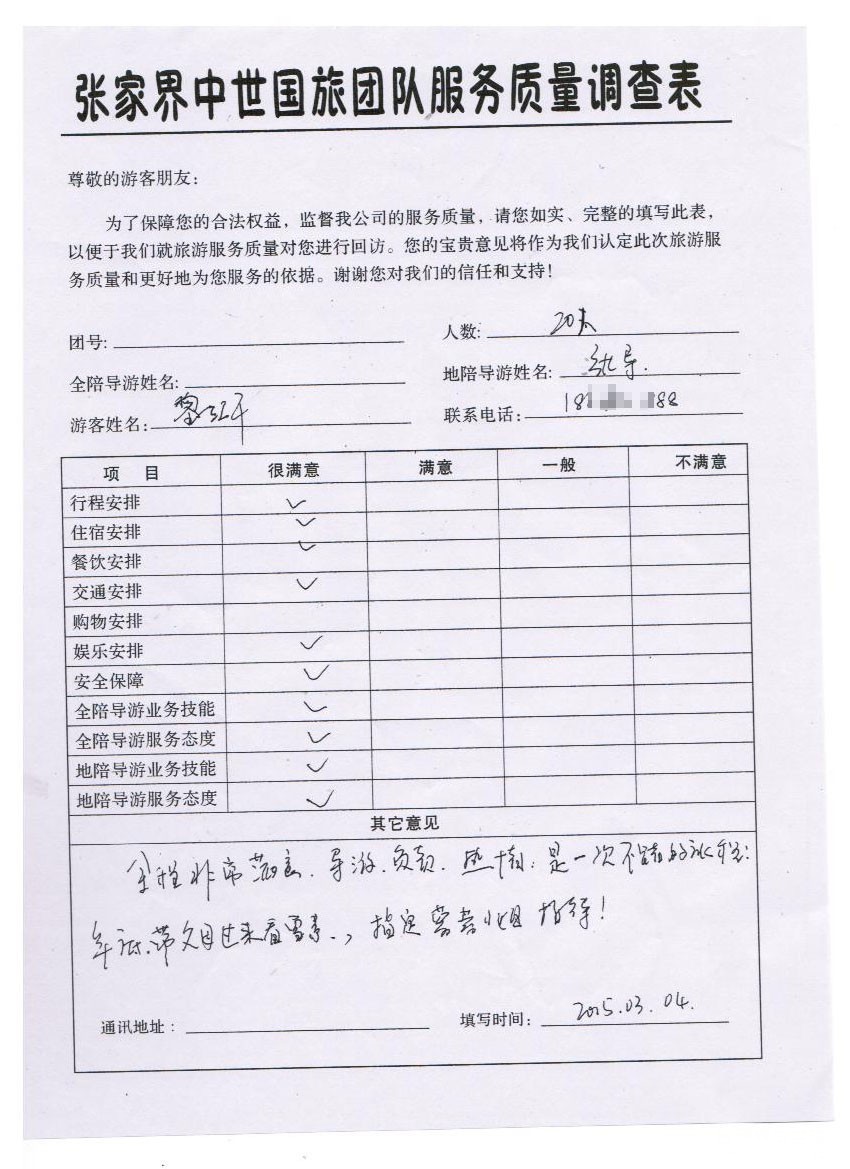 张家界中世国旅团队服务质量调查表
尊敬的游客朋友：
为了保障您的合法权益，监督我公司的服务质量，请您如实、完整的填写此表，
以便于我们就旅游服务质量对您进行回访。您的宝贵意见将作为我们认定此次旅游服
务质量和更好地为您服务的依据。谢谢您对我们的信任和支持！
团号： 人数： 20大
全陪导游姓名： 地陪导游姓名： 导
游客姓名： 黎 联系电话： 18 88
项 目 很满意 满意 一般 不满意
行程安排 ✓
住宿安排 ✓
餐饮安排 ✓
交通安排 ✓
购物安排
娱乐安排 ✓
安全保障 ✓
全陪导游业务技能 ✓
全陪导游服务态度 ✓
地陪导游业务技能 ✓
地陪导游服务态度 ✓
其它意见
全程非常满意、导游、负责、热情、是一次不错的旅程：
年底、带父母过来看雪景，指定 小姐 接待！
通讯地址： 填写时间： 2015.03.04.